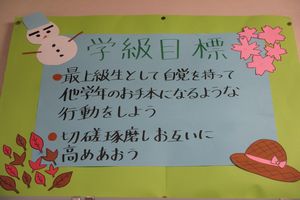 学級目標
●最上級生として自覚を持って
他学年のお手本になるような
行動をしよう
●切磋琢磨しお互いに
高めあおう